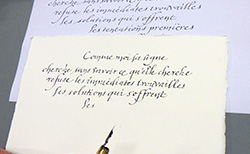 cherche, sans savoir ce qu'elle cherche
refuse les immédiates trouvailles
Ses solutions qui s'offrent
Ses tentations premières
Comme moi la ligne
cherche sans savoir ce qu'elle cherche
refuse les immédiates trouvailles
Ses solutions qui s'offrent
Ses